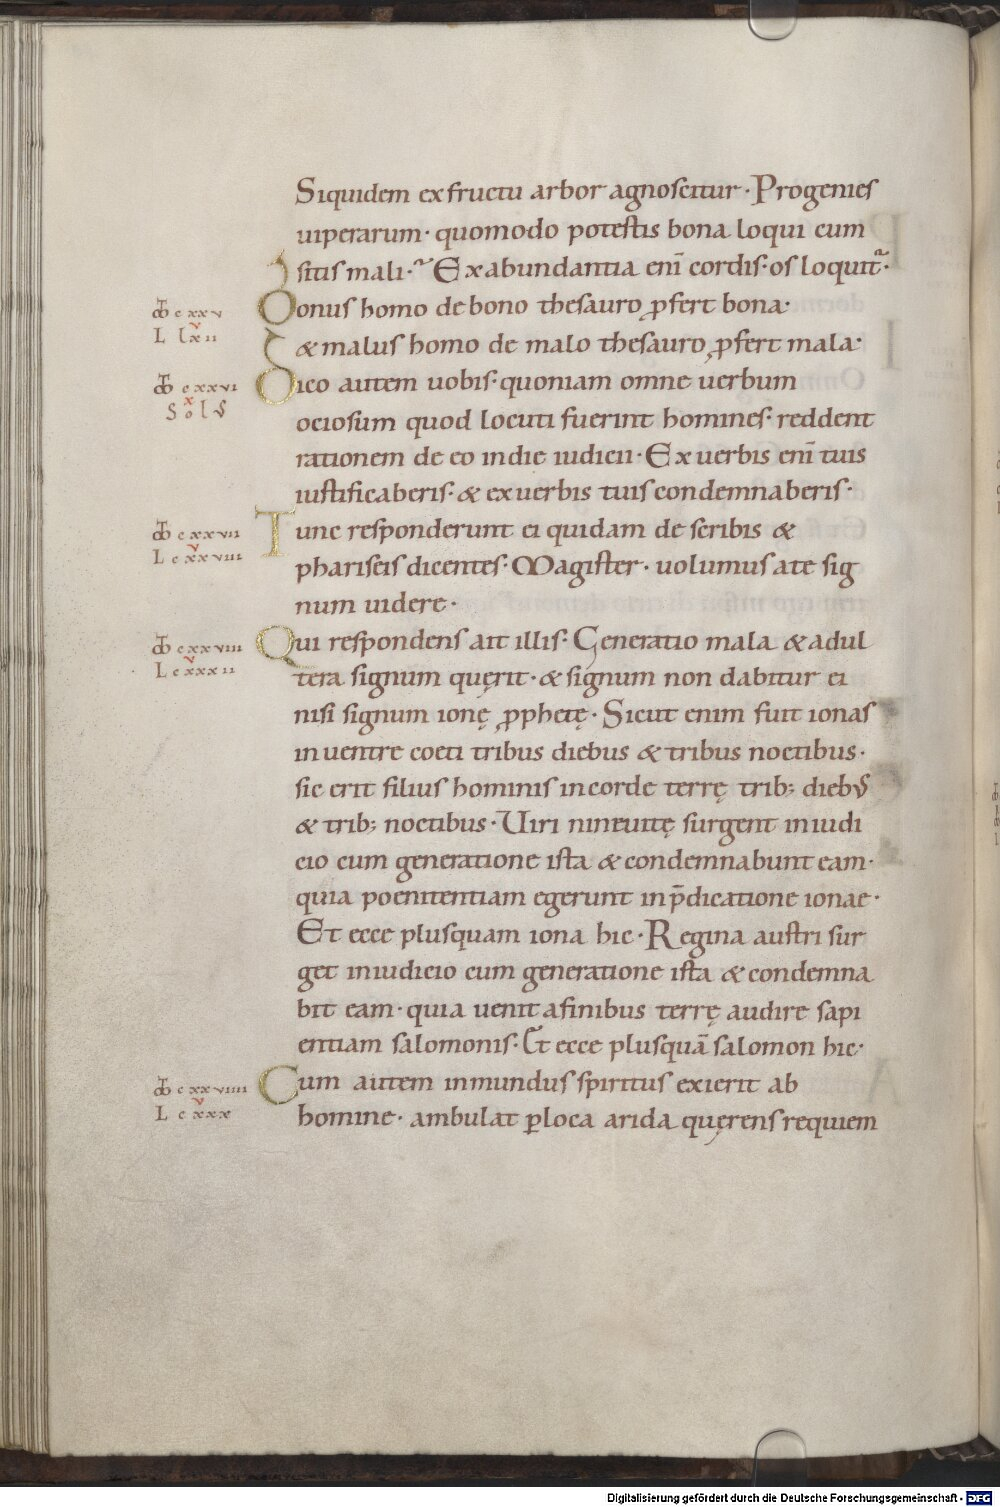 Siquidem ex fructu arbor agnoscitur · Progenies
uiperarum · quomodo potestis bona loqui cum
sitis mali · Ex abundantia eni̅ cordis · os loquit᷑ ·
Bonus homo de bono thesauro ꝓfert bona ·
& malus homo de malo thesauro ꝓfert mala ·
Dico autem uobis · quoniam omne uerbum
ociosum quod locuti fuerint homines · reddent
rationem de eo in die iudicii · Ex uerbis eni̅ tuis
iustificaberis · & ex uerbis tuis condemnaberis ·
Tunc responderunt ei quidam de scribis &
phariseis dicentes · Magister · uolumus a te sig
num uidere ·
Qui respondens ait illis · Generatio mala & adul
tera signum quęrit · & signum non dabitur ei
nisi signum ionę ꝓphetę · Sicut enim fuit ionas
in uentre coeti tribus diebus & tribus noctibus ·
sic erit filius hominis in corde terrę trib; dieb᷒
& trib; noctibus · Uiri nineuitę surgent in iudi
cio cum generatione ista & condemnabunt eam ·
quia poenitentiam egerunt in p̅dicatione ionae ·
Et ecce plusquam iona hic · Regina austri sur
get in iudicio cum generatione ista & condemna
bit eam · quia uenit a finibus terrę audire sapi
entiam salomonis · Et ecce plusqua̅ salomon hic ·
Cum autem inmundus spiritus exierit ab
homine · ambulat ꝑ loca arida quęrens requiem
c xxv
L lxii
c xxvi
Sol᷒
x
c xxvii
L c xxviii
v
c xxviii
L c xxxii
v
c xxviiii
L c xxx
v
Digitalisierung gefördert durch die Deutsche Forschungsgemeinschaft - DFG